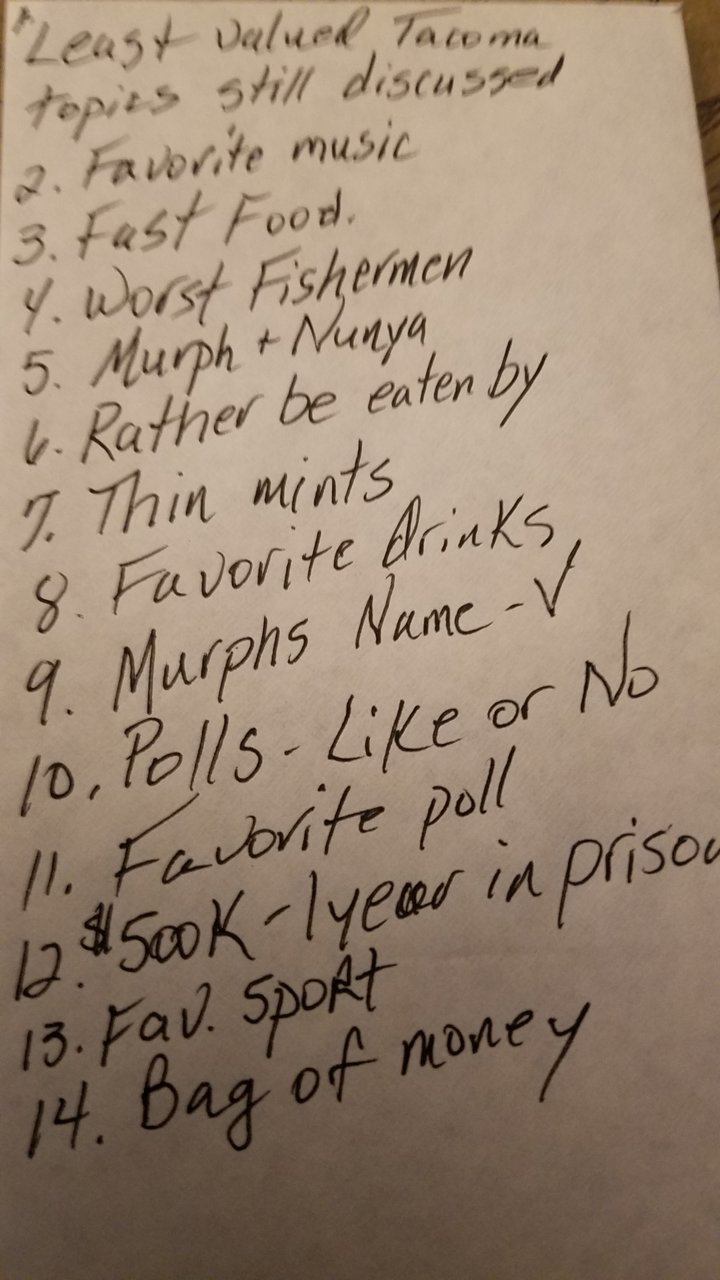 Least valued Tacoma
topics still discussed
2. Favorite music
3. Fast Food.
4. Worst Fishermen
5. Murph + Nunya
6. Rather be eaten by
7. Thin mints
8. Favorite drinks
9. Murphs Name - V
10. Polls - Like or No
11. Favorite poll
12. $500K - 1 year in prison
13. Fav. Sport
14. Bag of money